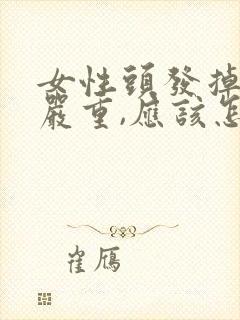 女性頭發掉
嚴重,應該怎
崔鴈